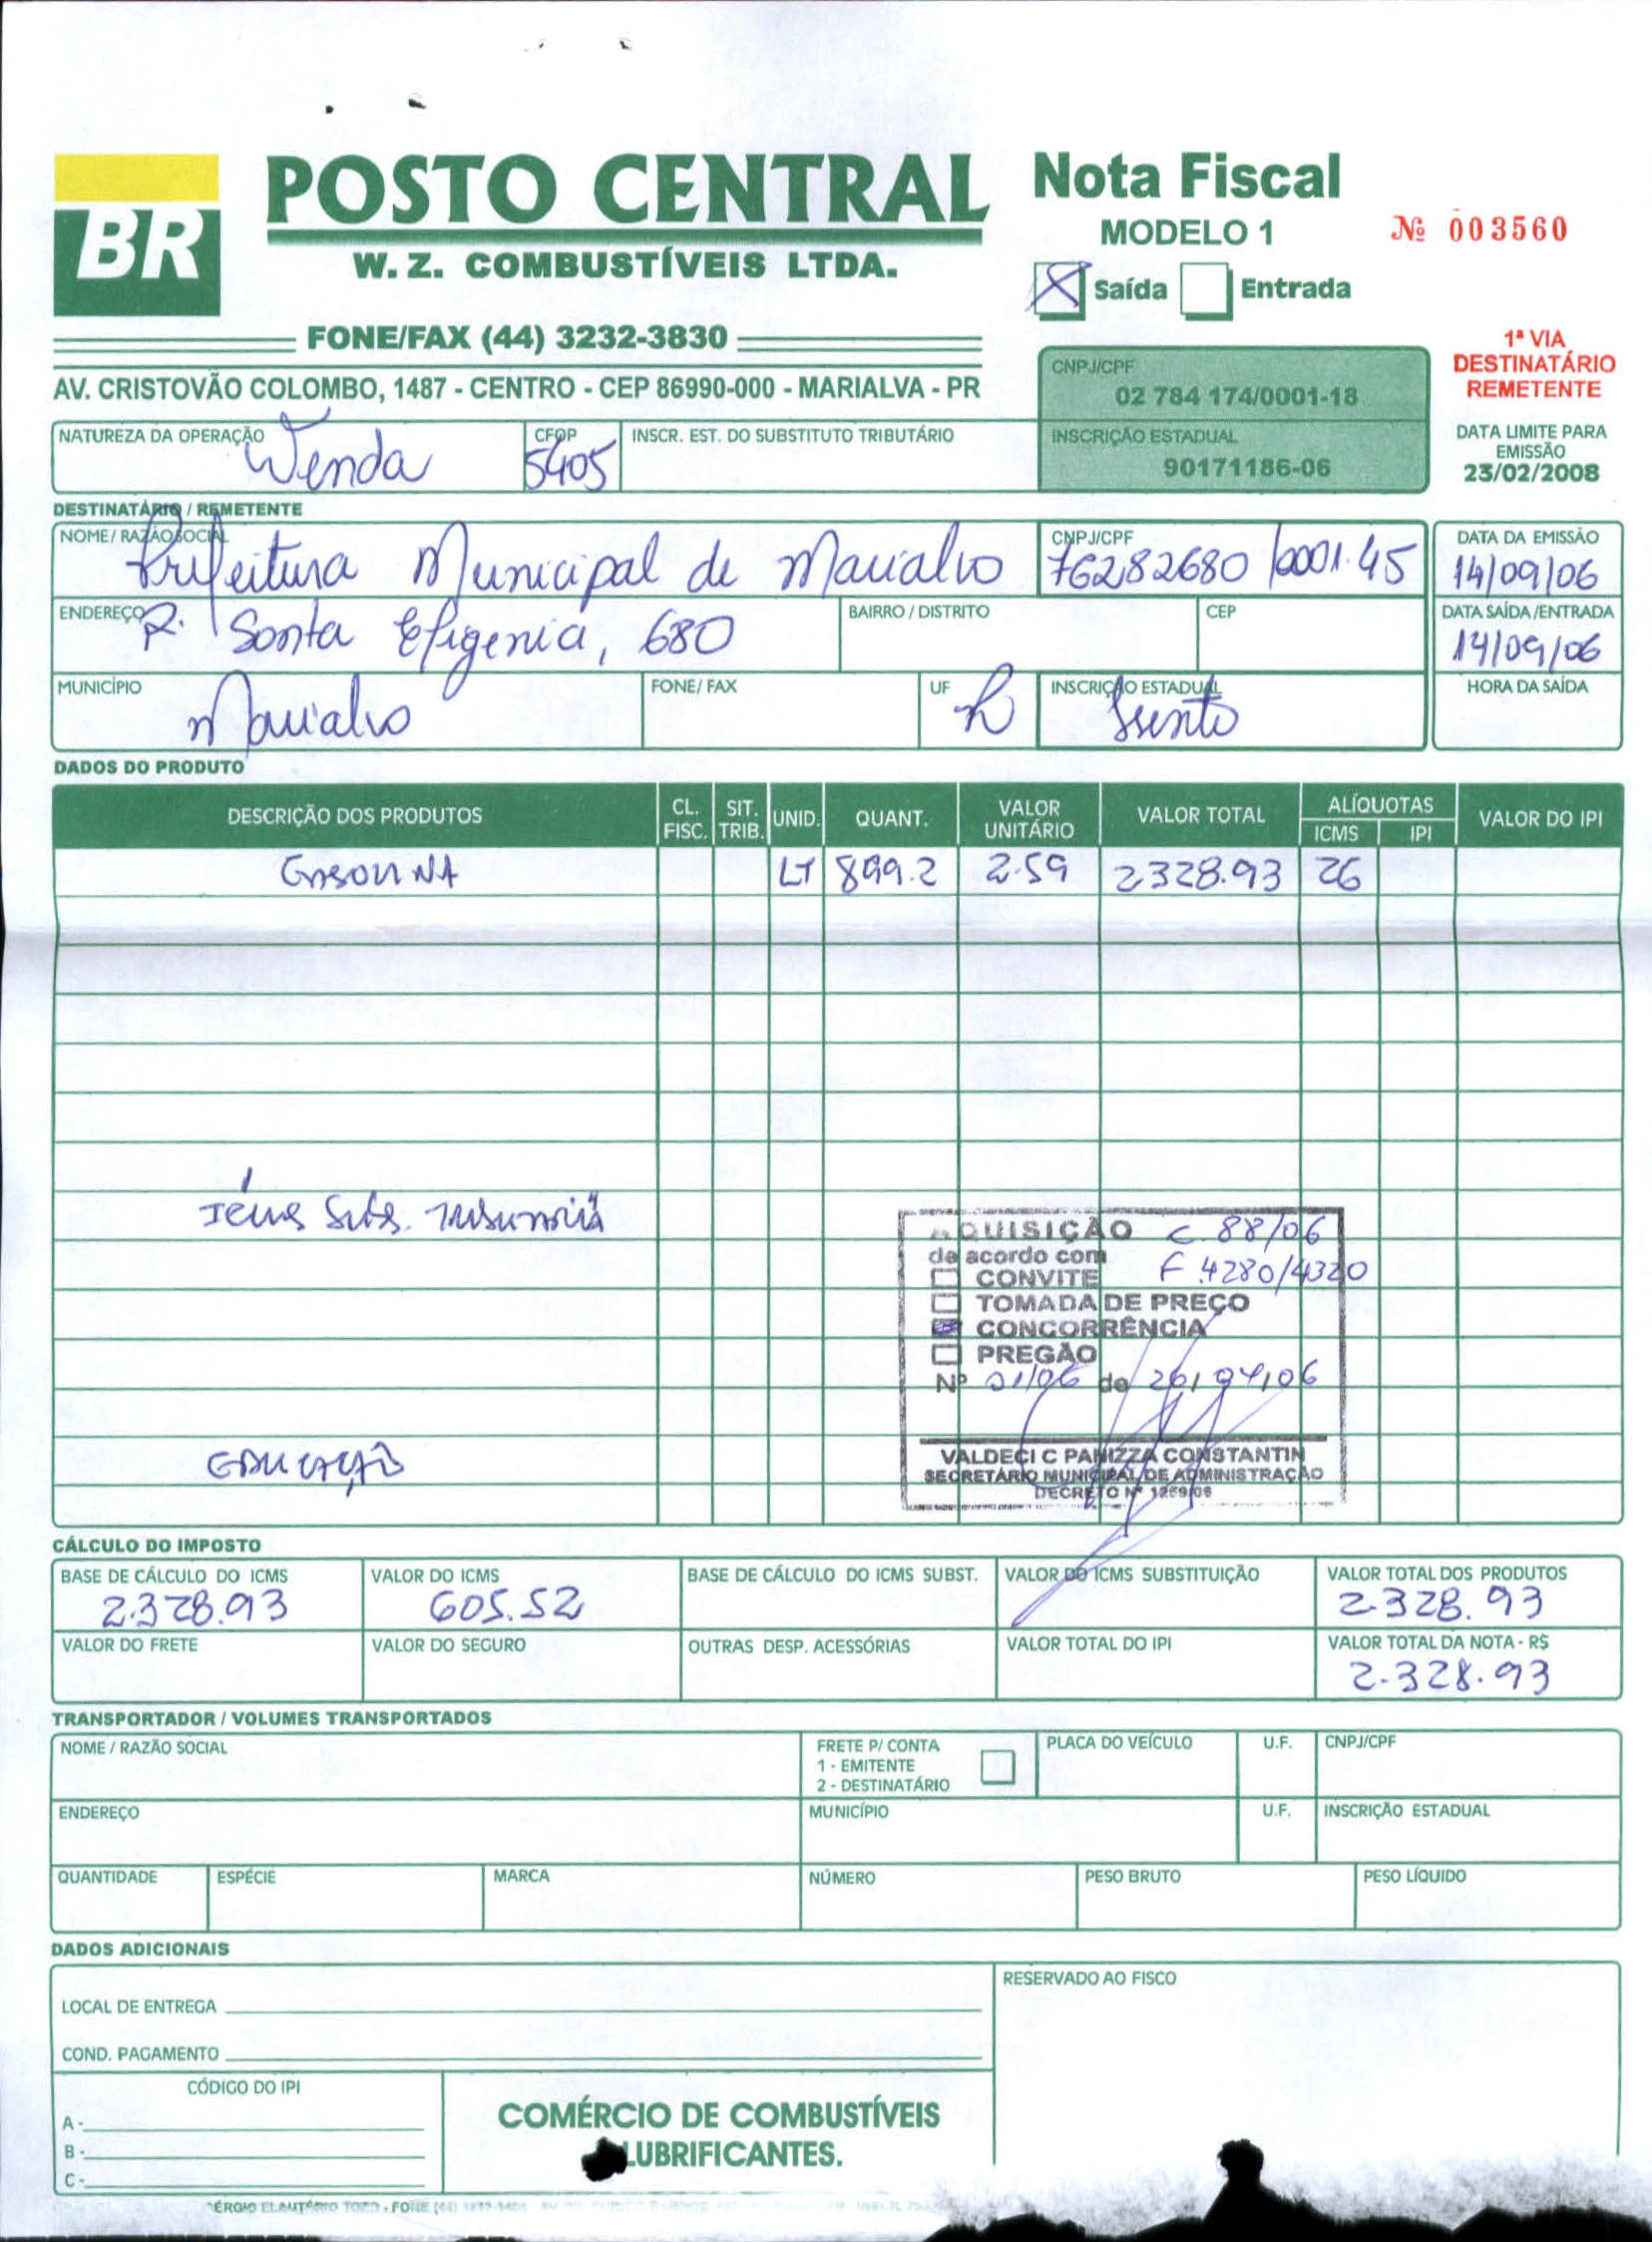 BR
POSTO CENTRAL
W. Z. COMBUSTÍVEIS LTDA.
FONE/FAX (44) 3232-3830
AV. CRISTOVÃO COLOMBO, 1487 - CENTRO - CEP 86990-000 - MARIALVA - PR
Nota Fiscal
MODELO 1
Nº 003560
X Saída Entrada
CNPJ/CPF
02 784 174/0001-18
INSCRIÇÃO ESTADUAL
90171186-06
1ª VIA
DESTINATÁRIO
REMETENTE
DATA LIMITE PARA
EMISSÃO
23/02/2008
NATUREZA DA OPERAÇÃO Venda
CFOP 5405
INSCR. EST. DO SUBSTITUTO TRIBUTÁRIO
DESTINATÁRIO / REMETENTE
NOME / RAZÃO SOCIAL Prefeitura Municipal de Marialva
CNPJ/CPF 76282680/0001.45
DATA DA EMISSÃO 14/09/06
ENDEREÇO R. Santa Efigenia, 680
BAIRRO / DISTRITO
CEP
DATA SAÍDA/ENTRADA 14/09/06
MUNICÍPIO Marialva
FONE/ FAX
UF Pr
INSCRIÇÃO ESTADUAL Isento
HORA DA SAÍDA
DADOS DO PRODUTO
DESCRIÇÃO DOS PRODUTOS CL. FISC. SIT. TRIB. UNID. QUANT. VALOR UNITÁRIO VALOR TOTAL ALÍQUOTAS ICMS IPI VALOR DO IPI
GASOLINA LT 899.2 2.59 2328.93 26
Icms Subs. Tributária
AQUISIÇÃO C. 88/06
de acordo com F 4280/4320
CONVITE
TOMADA DE PREÇO
CONCORRÊNCIA
PREGÃO
Nº 01/06 de 26/04/06
VALDECI C PANIZZA CONSTANTIN
SECRETÁRIO MUNICIPAL DE ADMINISTRAÇÃO
DECRETO Nº 1269/06
EDUCAÇÃO
CÁLCULO DO IMPOSTO
BASE DE CÁLCULO DO ICMS VALOR DO ICMS BASE DE CÁLCULO DO ICMS SUBST. VALOR DO ICMS SUBSTITUIÇÃO VALOR TOTAL DOS PRODUTOS
2.328.93 605.52 2.328.93
VALOR DO FRETE VALOR DO SEGURO OUTRAS DESP. ACESSÓRIAS VALOR TOTAL DO IPI VALOR TOTAL DA NOTA - R$
2.328.93
TRANSPORTADOR / VOLUMES TRANSPORTADOS
NOME / RAZÃO SOCIAL
FRETE P/ CONTA
1 - EMITENTE
2 - DESTINATÁRIO
PLACA DO VEÍCULO U.F. CNPJ/CPF
ENDEREÇO MUNICÍPIO U.F. INSCRIÇÃO ESTADUAL
QUANTIDADE ESPÉCIE MARCA NÚMERO PESO BRUTO PESO LÍQUIDO
DADOS ADICIONAIS
LOCAL DE ENTREGA
COND. PAGAMENTO
RESERVADO AO FISCO
CÓDIGO DO IPI
A -
B -
C -
COMÉRCIO DE COMBUSTÍVEIS
LUBRIFICANTES.